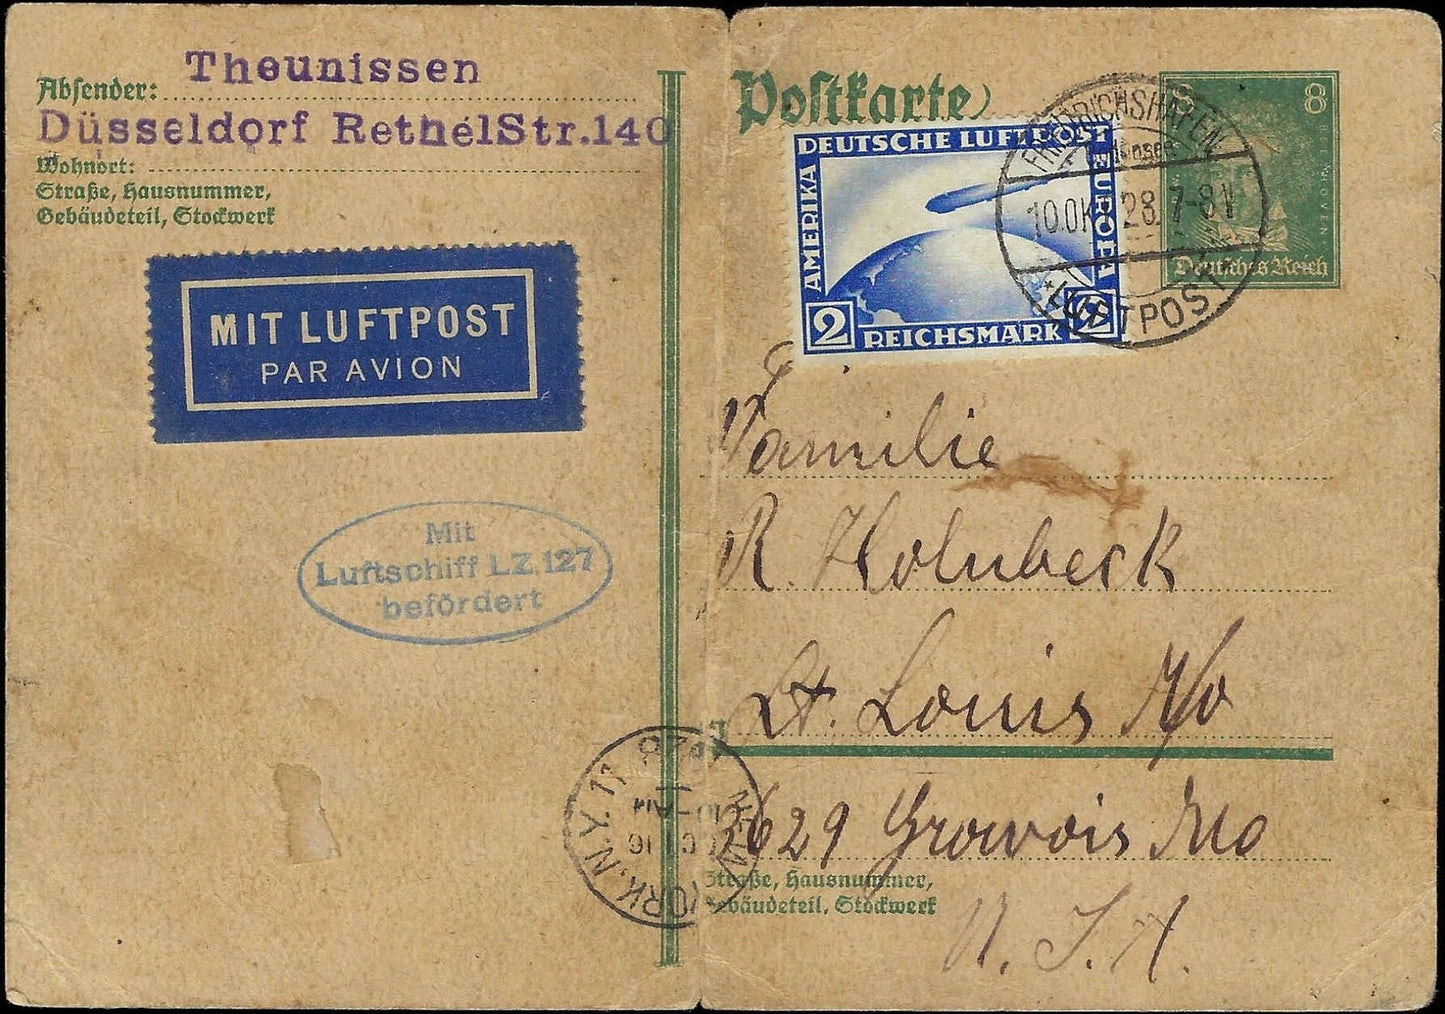 Theunissen
Absender:
Düsseldorf RethelStr.140
Wohnort:
Straße, Hausnummer,
Gebäudeteil, Stockwerk
MIT LUFTPOST
PAR AVION
Mit
Luftschiff LZ.127
befördert
Postkarte
8 8
BEETHOVEN
Deutsches Reich
DEUTSCHE LUFTPOST
AMERIKA
EUROPA
2 REICHSMARK
FRIEDRICHSHAFEN
10.OKT.28.7-8V
*LUFTPOST
Familie
R. Holnbeck
St. Louis Mo
3629 Growois Mo
Straße, Hausnummer,
Gebäudeteil, Stockwerk
U. S. A.
NEW YORK, N.Y. 11
OCT 16
10-AM
1928